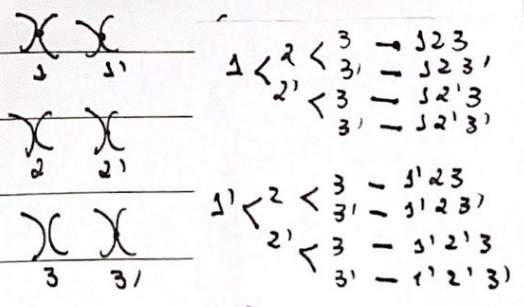 1 1'
2 2'
3 3'
1 < 2 < 3 – 123
3' – 123'
2' < 3 – 12'3
3' – 12'3'
1' < 2 < 3 – 1'23
3' – 1'23'
2' < 3 – 1'2'3
3' – 1'2'3'